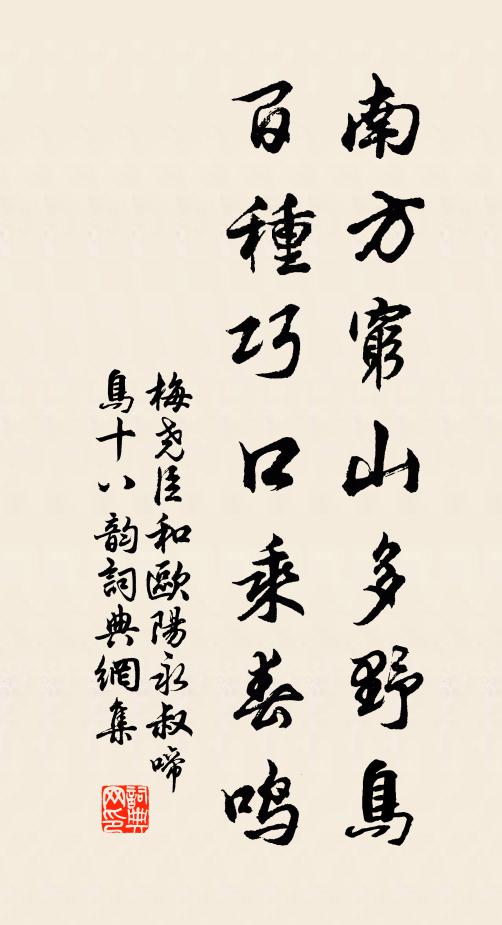 南方窮山多野鳥
百種巧口乘春鳴
梅堯臣和歐陽永叔啼
鳥十八韵詞典網集
詞典
网印